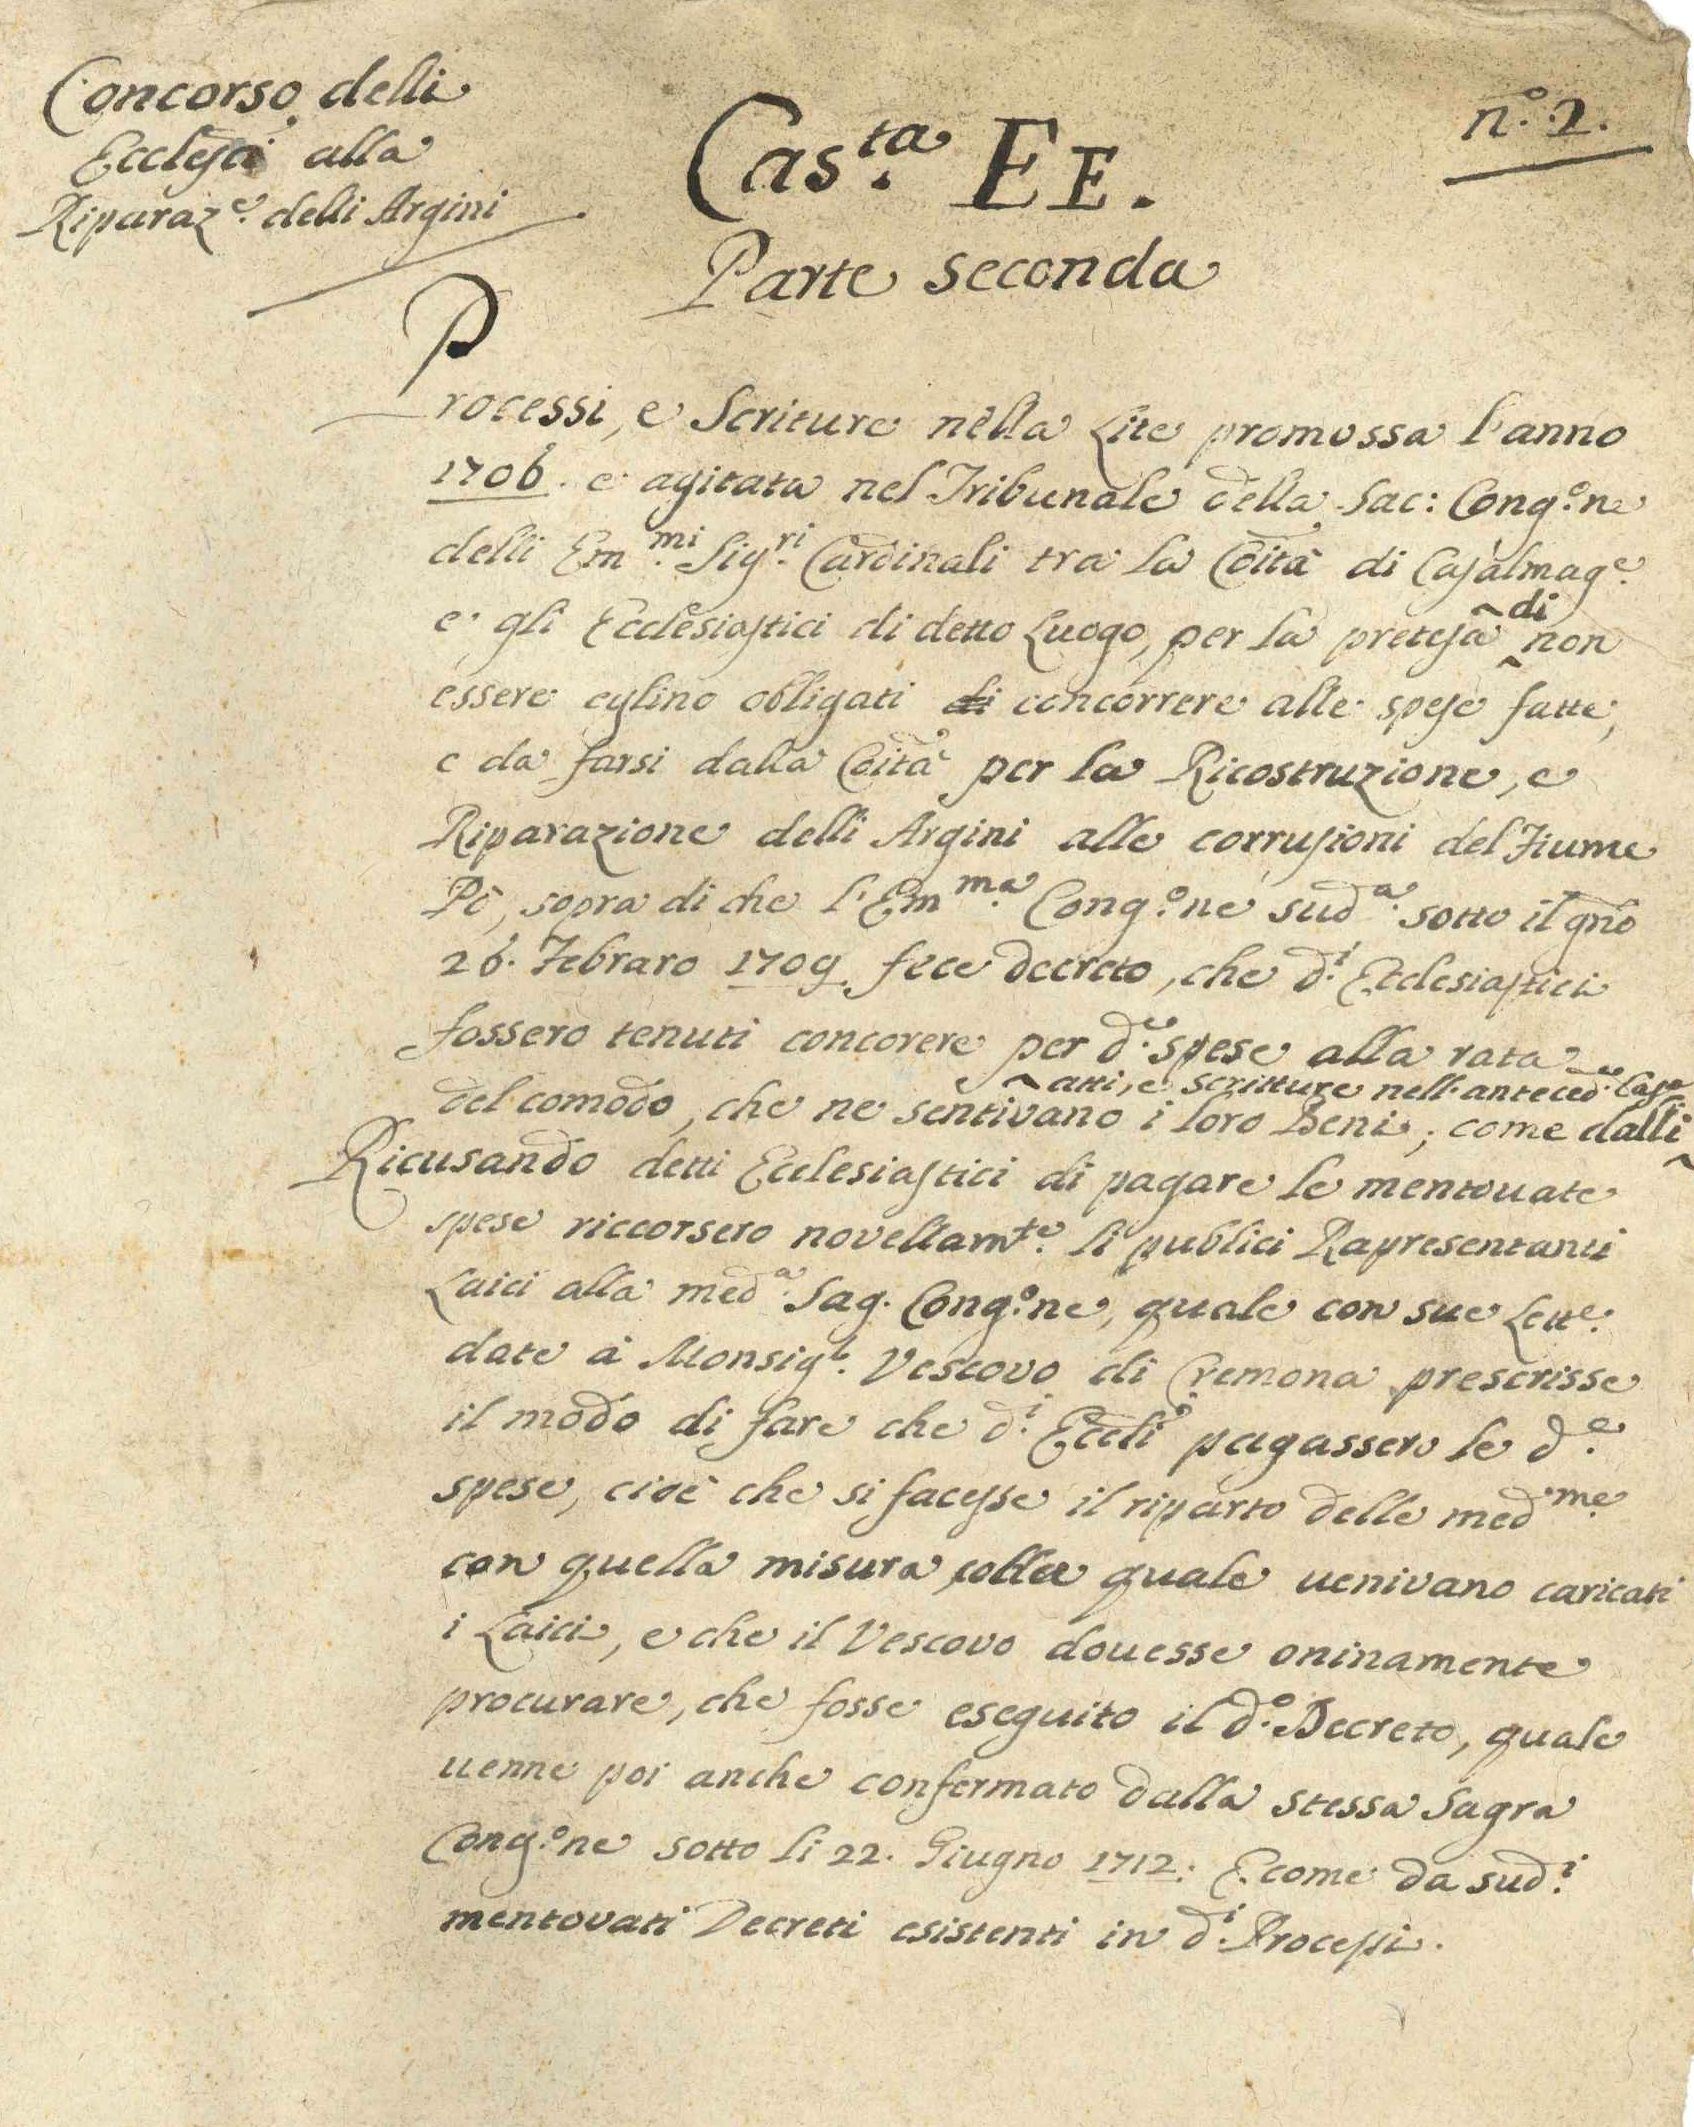 Concorso delli
Ecclesi alla
Riparaz.e delli Argini
Cas.ta EE.
n.o 2.
Parte seconda
Processi, e Scriture nella Lite promossa l'anno
1706. e agitata nel Tribunale della Sac: Cong.one
delli Em.mi Sig.ri Cardinali tra la Coità di Casalmag.e
e gli Ecclesiastici di detto Luogo, per la pretesa di non
essere eglino obligati di concorrere alle spese fatte,
e da farsi dalla Coità per la Ricostruzione, e
Riparazione delli Argini alle corrusioni del Fiume
Pò, sopra di che l'Em.ma Cong.one sud.a sotto il gno
26. Febraro 1709. fece decreto, che d.i Ecclesiastici
fossero tenuti concorere per d.e spese alla rata
atti, e scritture nell'anteced.e Casa
del comodo, che ne sentivano i loro Beni; come dalli
Ricusando detti Ecclesiastici di pagare le mentouate
spese riccorsero novellam.te li publici Rapresentanti
Laici alla med.a Sag. Cong.one, quale con sue Lett.e
date à Monsig.r Vescovo di Cremona prescrisse
il modo di fare che d.i Eccli pagassero le d.e
spese, cioè che si facesse il riparto delle med.me
con quella misura, colla quale uenivano caricati
i Laici, e che il Vescovo douesse oninamente
procurare, che fosse eseguito il d.o Decreto, quale
uenne poi anche confermato dalla stessa Sagra
Cong.one sotto li 22. Giugno 1712. E come da sud.i
mentovati Decreti esistenti in d.i Processi.